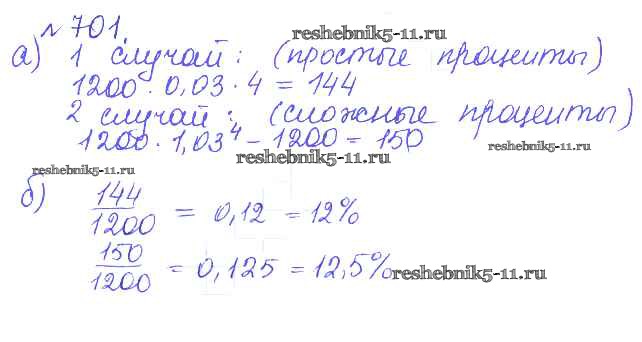 № 701.
reshebnik5-11.ru
а) 1 случай: (простые проценты)
1200 · 0,03 · 4 = 144
2 случай: (сложные проценты)
1200 · 1,03⁴ - 1200 = 150
reshebnik5-11.ru
reshebnik5-11.ru
reshebnik5-11.ru
б) 144/1200 = 0,12 = 12%
150/1200 = 0,125 = 12,5%
reshebnik5-11.ru